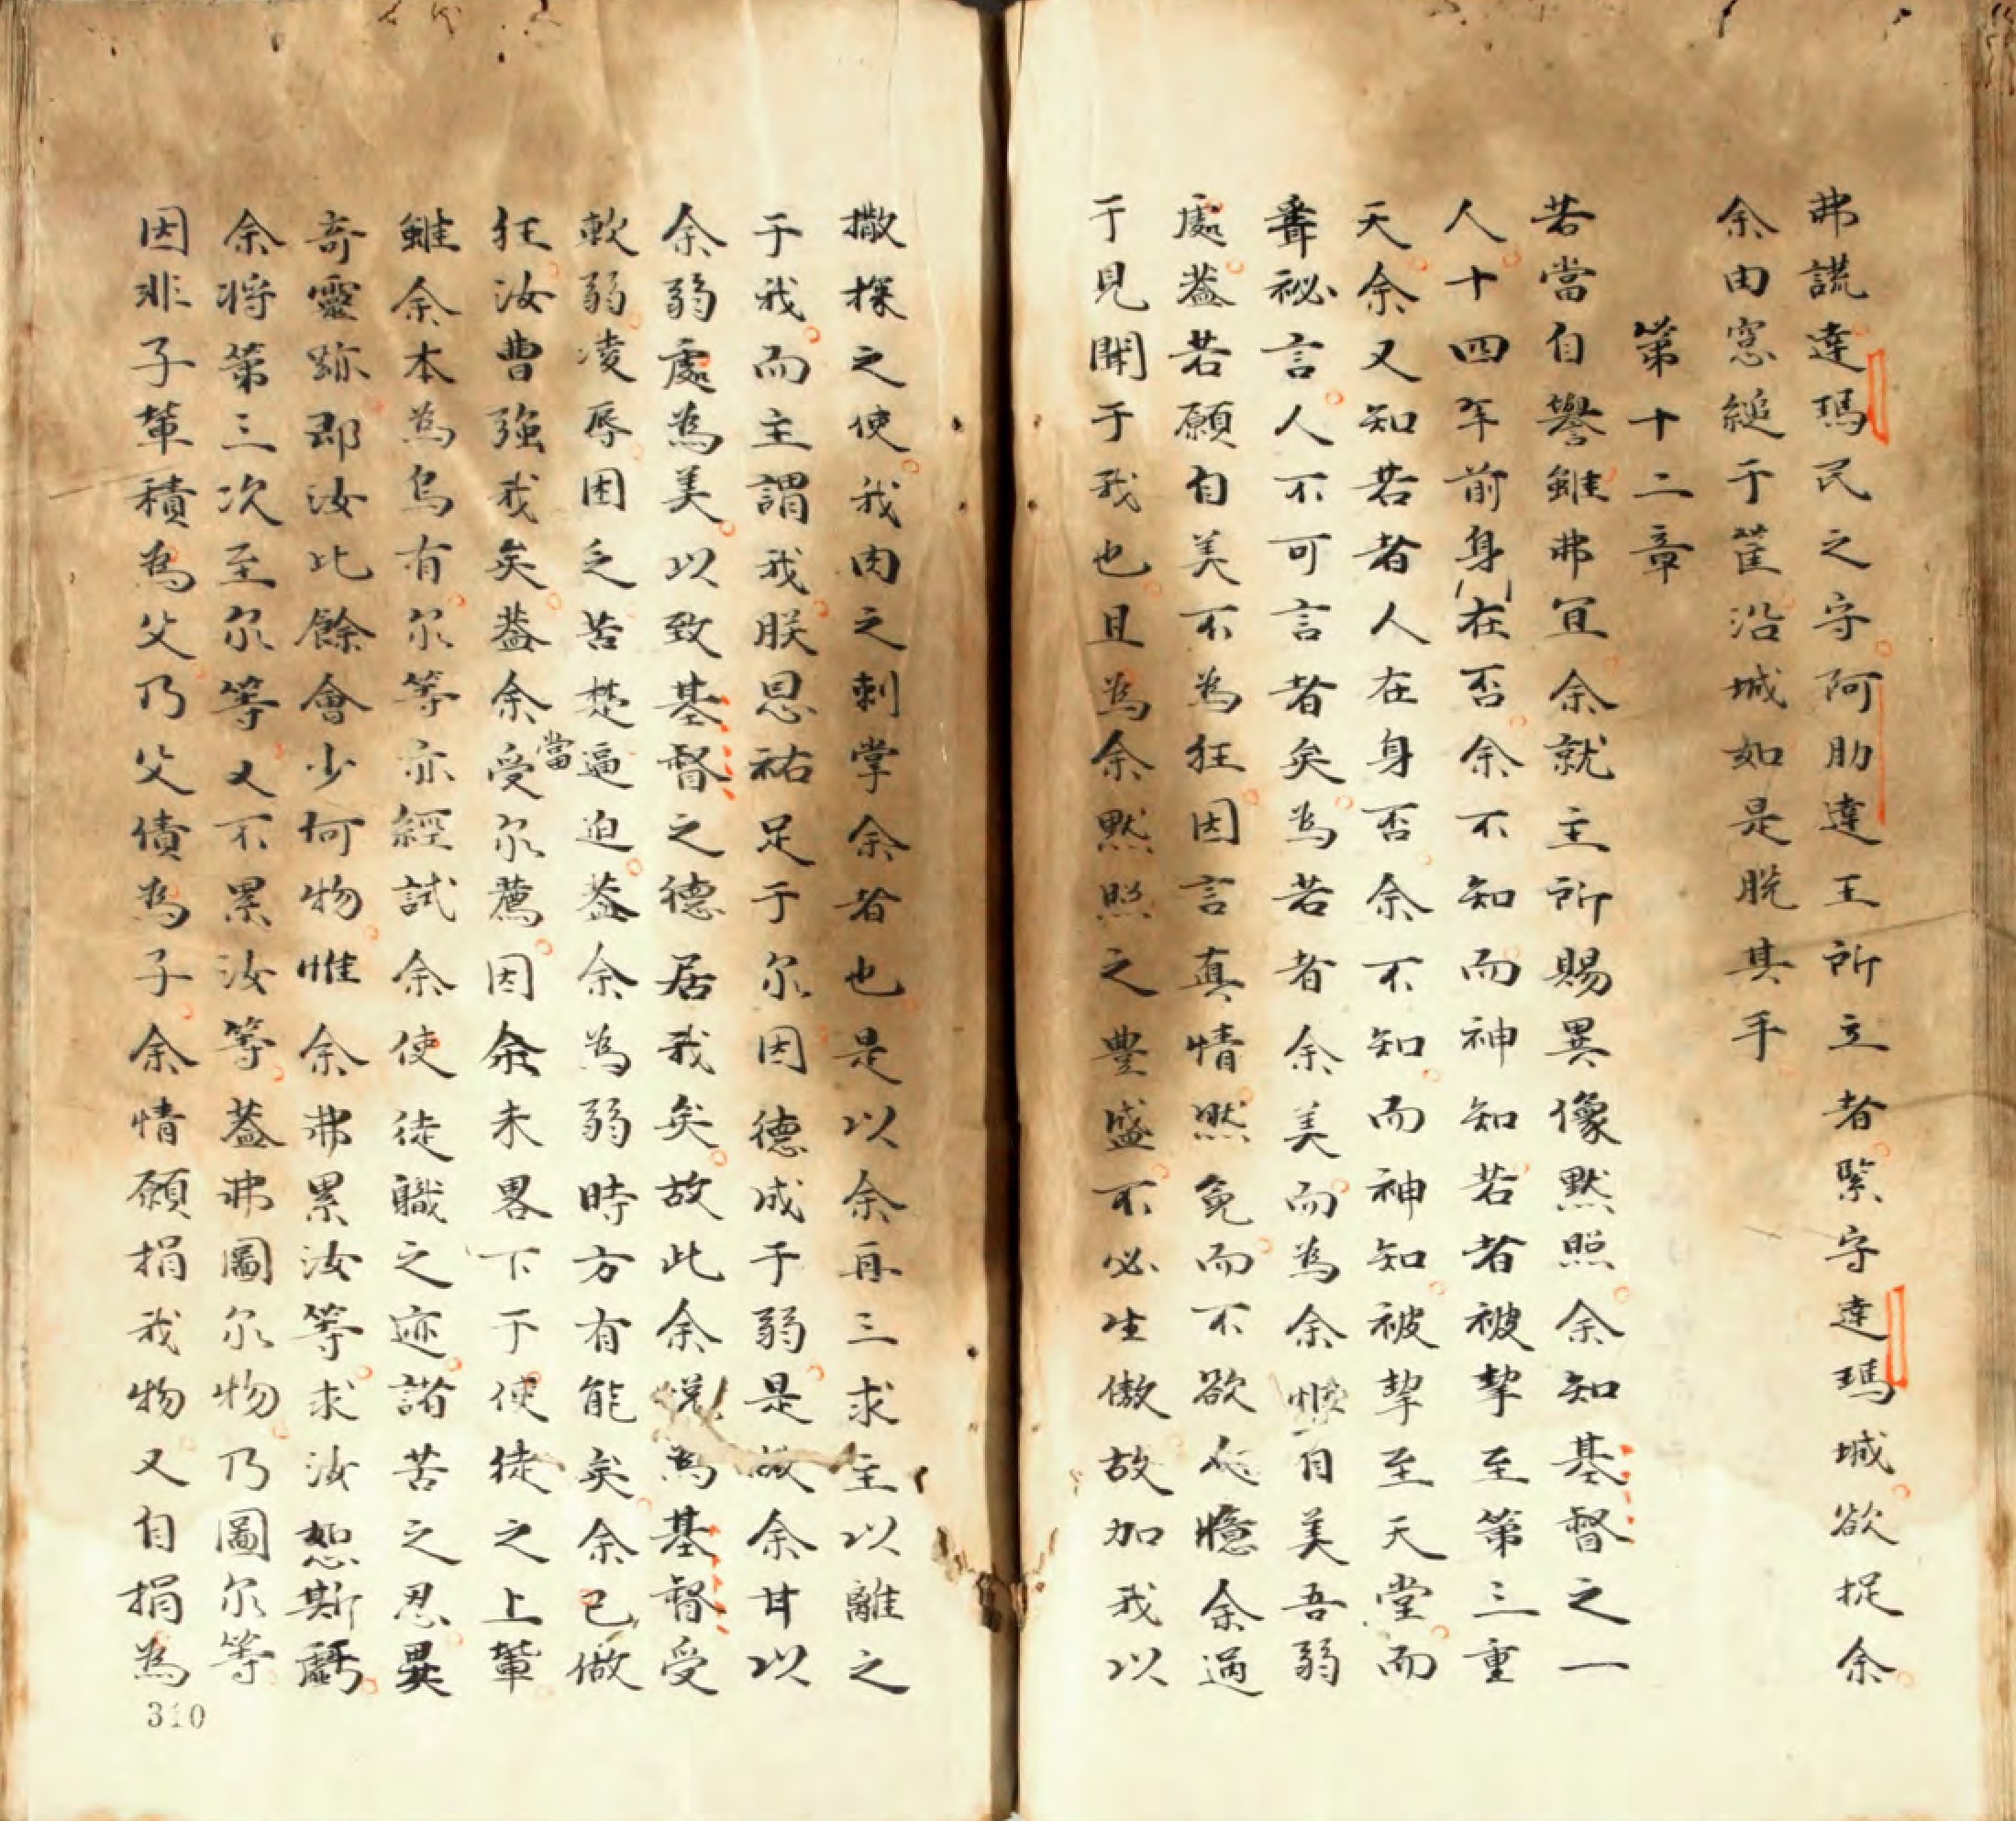 弗謊達瑪民之守阿肋達王所立者緊守達瑪城欲捉余
余由窓縋于筐沿城如是脱其手
第十二章
若當自譽雖弗宜余就主所賜異像黙照余知基督之一
人十四年前身在否余不知而神知若者被挈至第三重
天余又知若者人在身否余不知而神知被挈至天堂而
聽祕言人不可言者矣為若者余美而為余惟自美吾弱
處葢若願自美不為狂因言真情然免而不欲人憶余過
于見聞于我也且為余黙照之豊盛不必生傲故加我以
撒探之使我肉之刺掌余者也是以余再三求主以離之
于我而主謂我朕恩祐足于尔因德成于弱是故余甘以
余弱處為美以致基督之德居我矣故此余悦為基督受
軟弱凌辱困乏苦楚逼迫葢余為弱時方有能矣余已做
狂汝曹強我矣葢余當受尔薦因余未畧下于使徒之上輩
雖余本為烏有尔等亦經試余使徒職之迹諸苦之忍異
奇靈跡即汝比餘會少何物惟余弗累汝等求汝恕斯虧
余将第三次至尔等又不累汝等葢弗圖尔物乃圖尔等
因非子輩積為父乃父債為子余情願捐我物又自捐為
310